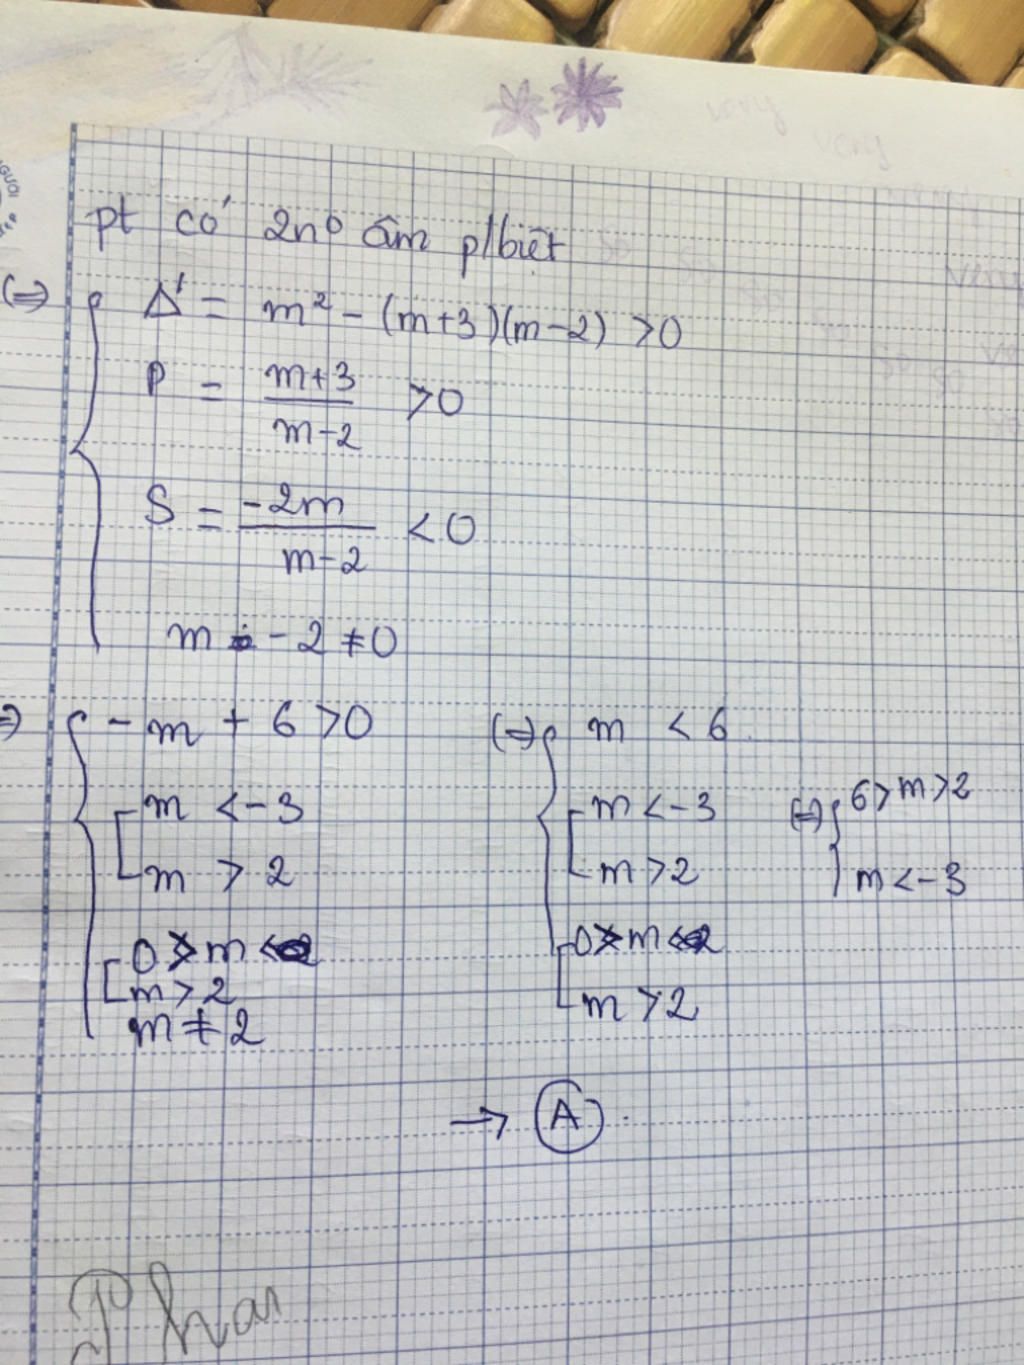 pt có 2n° âm p/biệt
(=) Δ' = m² - (m+3)(m-2) >0
P = m+3 / m-2 >0
S = -2m / m-2 <0
m - 2 ≠0
=) - m + 6 >0
m < -3
m > 2
0 > m <
m > 2
m ≠ 2
(=) m < 6
m < -3
m > 2
0 > m <
m > 2
(=) 6 > m > 2
m < -3
→ A.